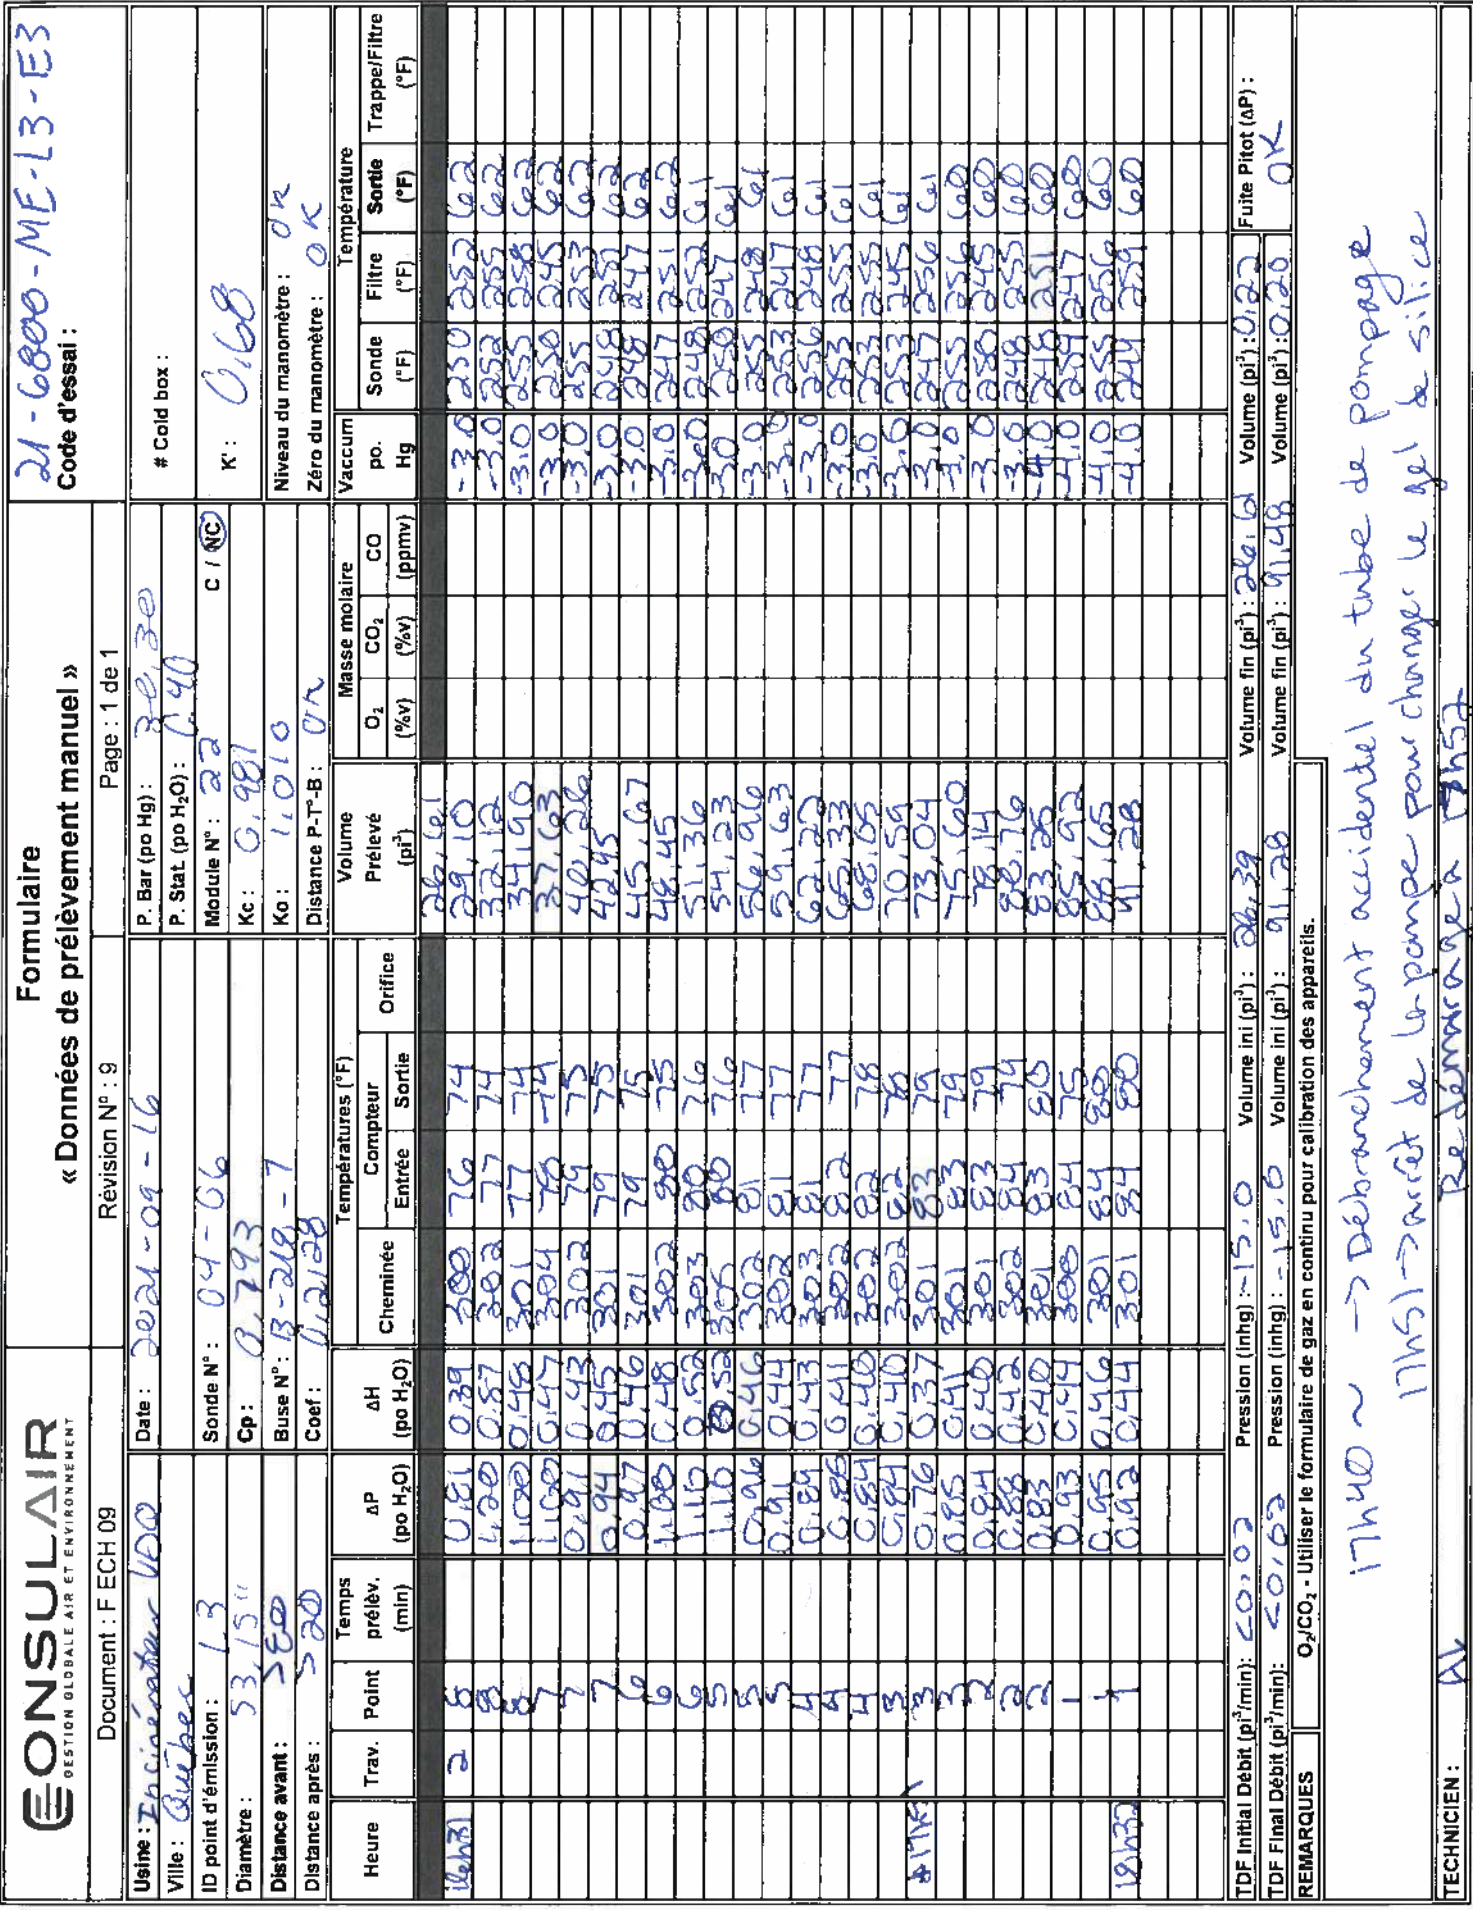 CONSULAIR
GESTION GLOBALE AIR ET ENVIRONNEMENT
Formulaire
« Données de prélèvement manuel »
21-6800-ME-L3-E3
Code d'essai :
Document : F ECH 09 Révision N° : 9 Page : 1 de 1
Usine : Incinérateur VDQ Date : 2021-09-16 P. Bar (po Hg) : 30,30 # Cold box :
Ville : Québec P. Stat. (po H₂O) :
ID point d'émission : L3 Sonde N° : 04-06 Module N° : 22 C / NC
Diamètre : 53,15" Cp : 0,793 Kc : 0,981 K' : 0,68
Distance avant : Buse N° : B-218-7 Ko : 1,010 Niveau du manomètre : OK
Distance après : >20 Coef : 0,2128 Distance P-T°-B : OK Zéro du manomètre : OK
Heure Trav. Point Temps prélèv. (min) ΔP (po H₂O) ΔH (po H₂O) Températures (°F) Cheminée Compteur Entrée Sortie Orifice Volume Prélevé (pi³) Masse molaire O₂ (%v) CO₂ (%v) CO (ppmv) Vaccum po. Hg Température Sonde (°F) Filtre (°F) Sortie (°F) Trappe/Filtre (°F)
26,61
16h31 2 8 0,81 0,39 300 76 74 29,10 -3,0 250 252 62
8 1,20 0,57 302 77 74 32,12 -3,0 252 255 62
8 1,00 0,48 301 77 74 34,90 -3,0 255 258 62
7 1,00 0,47 304 78 74 37,63 -3,0 250 245 62
7 0,91 0,43 302 79 75 40,26 -3,0 255 253 62
7 0,94 0,45 301 79 75 42,95 -3,0 248 251 62
6 0,97 0,46 301 79 75 45,67 -3,0 248 247 62
6 1,00 0,48 302 80 75 48,45 -3,0 247 251 62
6 1,10 0,52 303 80 76 51,36 -3,0 248 252 61
5 1,10 0,52 305 80 76 54,23 -3,0 250 247 61
5 0,96 0,46 302 81 77 56,96 -3,0 255 248 61
5 0,91 0,44 302 81 77 59,63 -3,0 253 247 61
4 0,89 0,43 303 81 77 62,22 -3,0 256 248 61
4 0,86 0,41 302 82 77 65,33 -3,0 250 255 61
4 0,84 0,40 302 82 78 68,05 -3,0 253 255 61
3 0,84 0,40 302 82 78 70,59 -3,0 253 245 61
3 0,76 0,37 301 83 79 73,04 -3,0 247 256 61
3 0,85 0,41 301 83 79 75,60 -3,0 255 256 60
2 0,84 0,40 301 83 79 78,14 -3,0 250 245 60
2 0,88 0,42 302 84 79 80,76 -3,0 248 255 60
2 0,83 0,40 301 83 80 83,25 -4,0 248 251 60
1 0,93 0,44 300 84 75 85,92 -4,0 254 247 60
1 0,95 0,46 301 84 80 88,65 -4,0 255 256 60
18h32 1 0,92 0,44 301 84 80 91,28 -4,0 249 259 60
TDF Initial Débit (pi³/min): <0,02 Pression (inhg) : -15,0 Volume ini (pi³) : 26,39 Volume fin (pi³) : 26,61 Volume (pi³) : 0,22 Fuite Pitot (ΔP) :
TDF Final Débit (pi³/min): <0,02 Pression (inhg) : -15,0 Volume ini (pi³) : 91,28 Volume fin (pi³) : 91,48 Volume (pi³) : 0,20 OK
REMARQUES O₂/CO₂ - Utiliser le formulaire de gaz en continu pour calibration des appareils.
17h40 ~ -> Débranchement accidentel du tube de pompage
17h51 -> arrêt de la pompe pour changer le gel de silice
TECHNICIEN : Redémarrage à 17h52